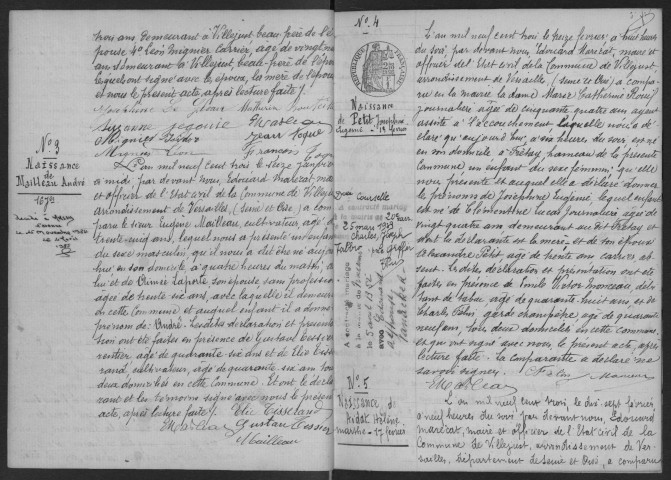 trois ans demeurant à Villejust beau père de l'é
pouse 4° Léon Mignier Carrier, âgé de vingt neuf
ans demeurant à Villejust, beau-frère de l'époux
lesquels ont signé avec les époux, la mère de l'époux
et nous le présent acte, après lecture faite.
Suzanne
Mignier
Jean
Mignier Léon
François
N° 3
Naissance
de
Mailleau André
L'an mil neuf cent trois le seize janvier
à midi, par devant nous, Edouard Marécat, maire
et officier de l'Etat civil de la Commune de Villejust
arrondissement de Versailles, (Seine et Oise) a com-
paru le sieur Eugène Mailleau, cultivateur, âgé de
trente cinq ans, lequel nous a présenté un enfant
du sexe masculin, qui il nous a dit être né aujour-
d'hui en son domicile à quatre heures du matin, de
lui et de Aimée Laporte son épouse, sans profession
âgée de trente six ans, avec laquelle il demeure
en cette Commune et auquel enfant il a donné le
prénom de: André. Les dites déclaration et présenta-
tion ont été faites en présence de Gustave Tessier
rentier, âgé de quarante six ans et de Elie Tisse-
rand, cultivateur, âgé de quarante six ans tous
deux domiciliés en cette Commune. Et ont le décla-
rant et les témoins signé avec nous le présent
acte, après lecture faite.
Elie Tisserand
Gustave Tessier
Mailleau
N° 4
RÉPUBLIQUE FRANÇAISE
Naissance
de
Petit Joséphine
Eugénie - 16 février
25 mars 1929
Charles, Joseph
L'an mil neuf cent trois le seize février, à huit heures
du soir, par devant nous, Edouard Marécat, maire et
officier de l'Etat civil de la Commune de Villejust,
arrondissement de Versailles (Seine et Oise) a com-
paru en la mairie la dame Marie Catherine
journalière âgée de cinquante quatre ans ayant
assisté à l'accouchement laquelle nous a dé-
claré qu'aujourd'hui, à six heures du soir, est né
en son domicile à Fretay, hameau de la présente
Commune un enfant du sexe féminin, qu'elle
nous présente et auquel elle a déclaré donner
le prénoms de Joséphine Eugénie, lequel enfant
est né de Clémentine Lucas journalière âgée de
vingt quatre ans demeurant au dit Fretay et
dont la déclarante est la mère, et de son époux
Alexandre Petit âgé de trente ans carrier ab-
sent. Les dites déclaration et présentation ont été
faites en présence de Emile Victor Monceau, débi-
tant de tabac, âgé de quarante huit ans, et de
Charles Felin, garde champêtre, âgé de quarante
neuf ans, tous deux domiciliés en cette commune
et qui ont signé avec nous, le présent acte, après
lecture faite. La comparante a déclaré ne
savoir signer.
N° 5
Naissance de
Hélène
Marthe - 17 février
L'an mil neuf cent trois, le dix sept février,
à neuf heures du soir, par devant nous, Edouard
Marécat, maire et officier de l'Etat civil de la
Commune de Villejust, arrondissement de Ver-
sailles, département de Seine et Oise, a comparu